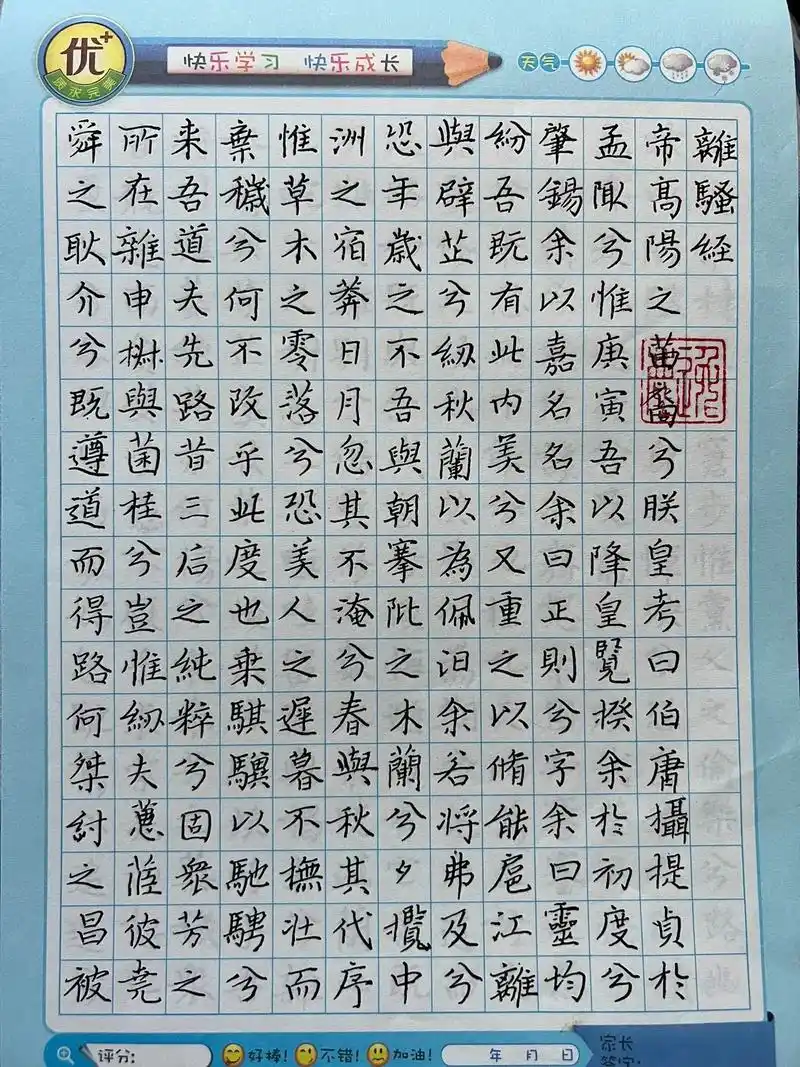 优+
快乐学习 快乐成长
天气
離騷經
帝髙陽之苗裔兮朕皇考曰伯庸攝提貞於
孟陬兮惟庚寅吾以降皇覽揆余於初度兮
肇錫余以嘉名名余曰正則兮字余曰靈均
紛吾既有此内美兮又重之以脩能扈江離
與辟芷兮紉秋蘭以為佩汨余若将弗及兮
恐年歲之不吾與朝搴阰之木蘭兮夕攬中
洲之宿莽日月忽其不淹兮春與秋其代序
惟草木之零落兮恐美人之遲暮不撫壯而
棄穢兮何不改乎此度也乘騏驥以馳騁兮
来吾道夫先路昔三后之純粹兮固眾芳之
所在雜申椒與菌桂兮豈惟紉夫蕙茝彼堯
舜之耿介兮既遵道而得路何桀紂之昌被
评分: 好棒! 不错! 加油! 年 月 日
家长
签字: